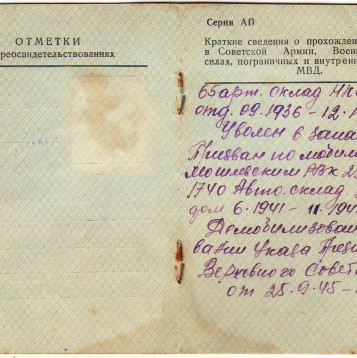 ОТМЕТКИ
реосвидетельствованиях
Серия АП
Краткие сведения о прохожден
в Советской Армии, Воен
силах, пограничных и внутрен
МВД.
65 арт. склад
отд. 09.1936 - 12.
Уволен в запа
Призван по мобил
РВК
1740 Авто. склад
6.1941 - 11.194
Демобилизован
вании Указа През
Верховного Совет
от 25.9.45 -